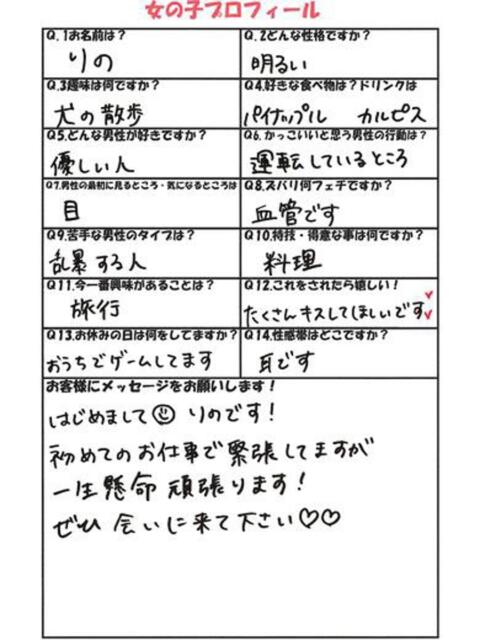 女の子プロフィール
Q.1お名前は？
りの
Q.2どんな性格ですか？
明るい
Q.3趣味は何ですか？
犬の散歩
Q4.好きな食べ物は？ドリンクは
パイナップル カルピス
Q5.どんな男性が好きですか？
優しい人
Q6.かっこいいと思う男性の行動は？
運転しているところ
Q7.男性の最初に見るところ・気になるところは
目
Q8.ズバリ何フェチですか？
血管です
Q9.苦手な男性のタイプは？
乱暴する人
Q10.特技・得意な事は何ですか？
料理
Q11.今一番興味があることは？
旅行
Q12.これをされたら嬉しい！
たくさんキスしてほしいです
Q13.お休みの日は何をしてますか？
おうちでゲームしてます
Q14.性感帯はどこですか？
耳です
お客様にメッセージをお願いします！
はじめまして☺ りのです！
初めてのお仕事で緊張してますが
一生懸命 頑張ります！
ぜひ 会いに来て下さい♡♡